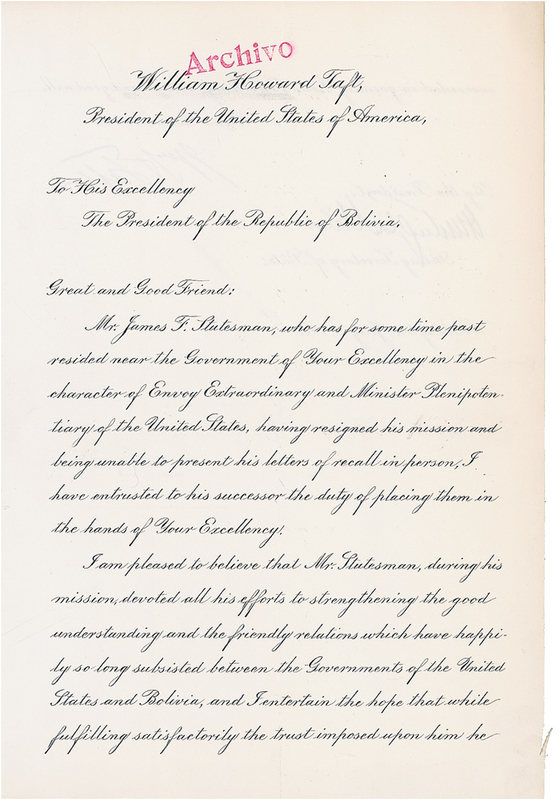 Archivo
William Howard Taft,
President of the United States of America,
To His Excellency
The President of the Republic of Bolivia.
Great and Good Friend:
Mr. James F. Stutesman, who has for some time past
resided near the Government of Your Excellency in the
character of Envoy Extraordinary and Minister Plenipoten-
tiary of the United States, having resigned his mission and
being unable to present his letters of recall in person, I
have entrusted to his successor the duty of placing them in
the hands of Your Excellency.
I am pleased to believe that Mr. Stutesman, during his
mission, devoted all his efforts to strengthening the good
understanding and the friendly relations which have happi-
ly so long subsisted between the Governments of the United
States and Bolivia, and I entertain the hope that while
fulfilling satisfactorily the trust imposed upon him he